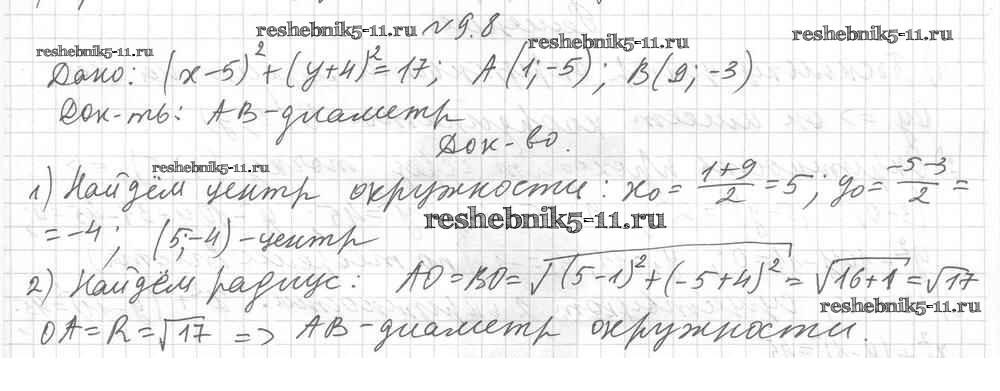 reshebnik5-11.ru №9.8 reshebnik5-11.ru reshebnik5-11.ru
reshebnik5-11.ru
Дано: (x-5)²+(y+4)²=17; A(1;-5); B(9;-3)
Док-ть: AB-диаметр
Док-во.
reshebnik5-11.ru
1) Найдём центр окружности: x₀= (1+9)/2 =5; y₀= (-5-3)/2 =
=-4; (5;-4)-центр
reshebnik5-11.ru
2) Найдём радиус: AO=BO=√((5-1)²+(-5+4)²)=√(16+1)=√17
reshebnik5-11.ru
OA=R=√17 => AB-диаметр окружности.